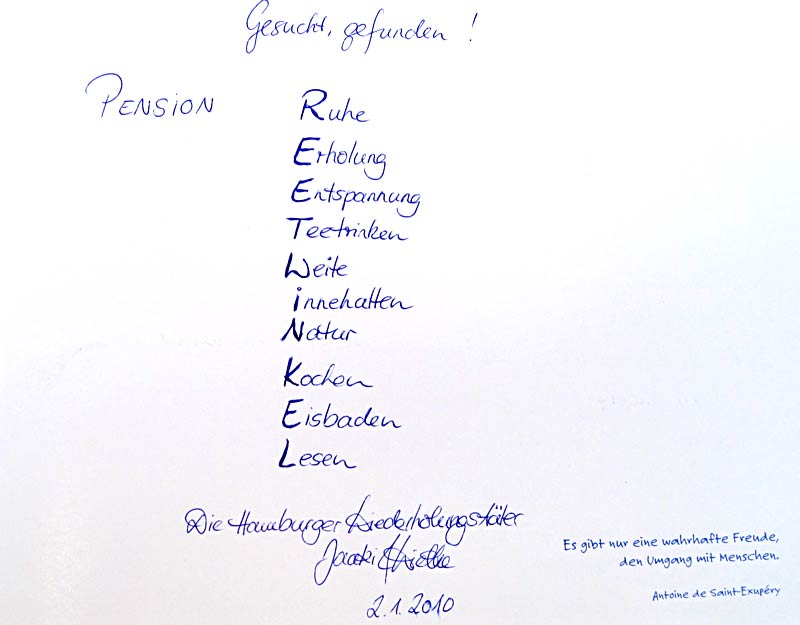 Gesucht, gefunden !
PENSION Ruhe
Erholung
Entspannung
Teetrinken
Weite
innehalten
Natur
Kochen
Eisbaden
Lesen
Die Hamburger Wiederholungstäter
2.1.2010
Es gibt nur eine wahrhafte Freude,
den Umgang mit Menschen.
Antoine de Saint-Exupéry